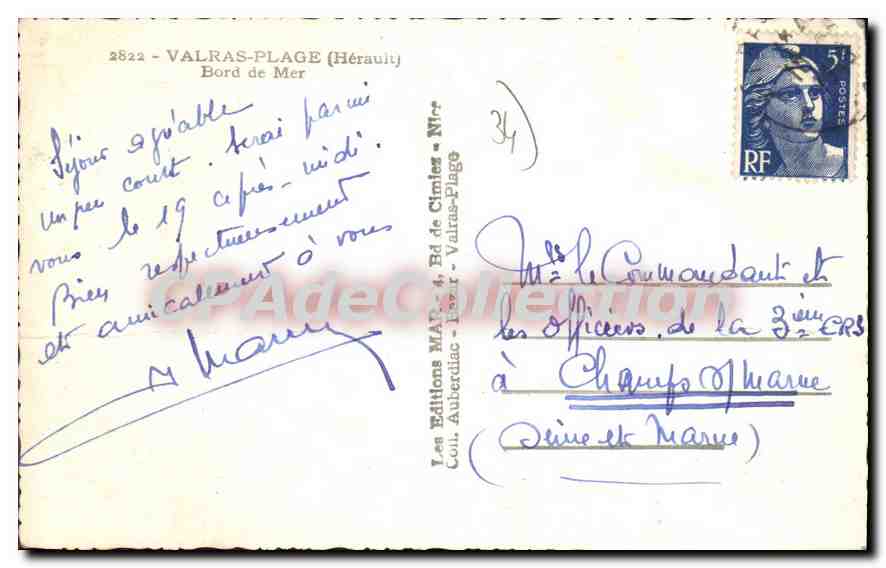 2822 - VALRAS-PLAGE (Hérault)
Bord de Mer
Séjour agréable
un peu court. Serai parmi
vous le 19 après-midi.
Bien respectueusement
et amicalement à vous
Les Editions MAR, 4, Bd de Cimiez - Nice
Coll. Auberdiac - Bazar - Valras-Plage
34)
5F
POSTES
RF
Mrs le Commandant et
les officiers de la 3ième CRS
à Champs s/ Marne
(Seine et Marne)
CPAdeCollection